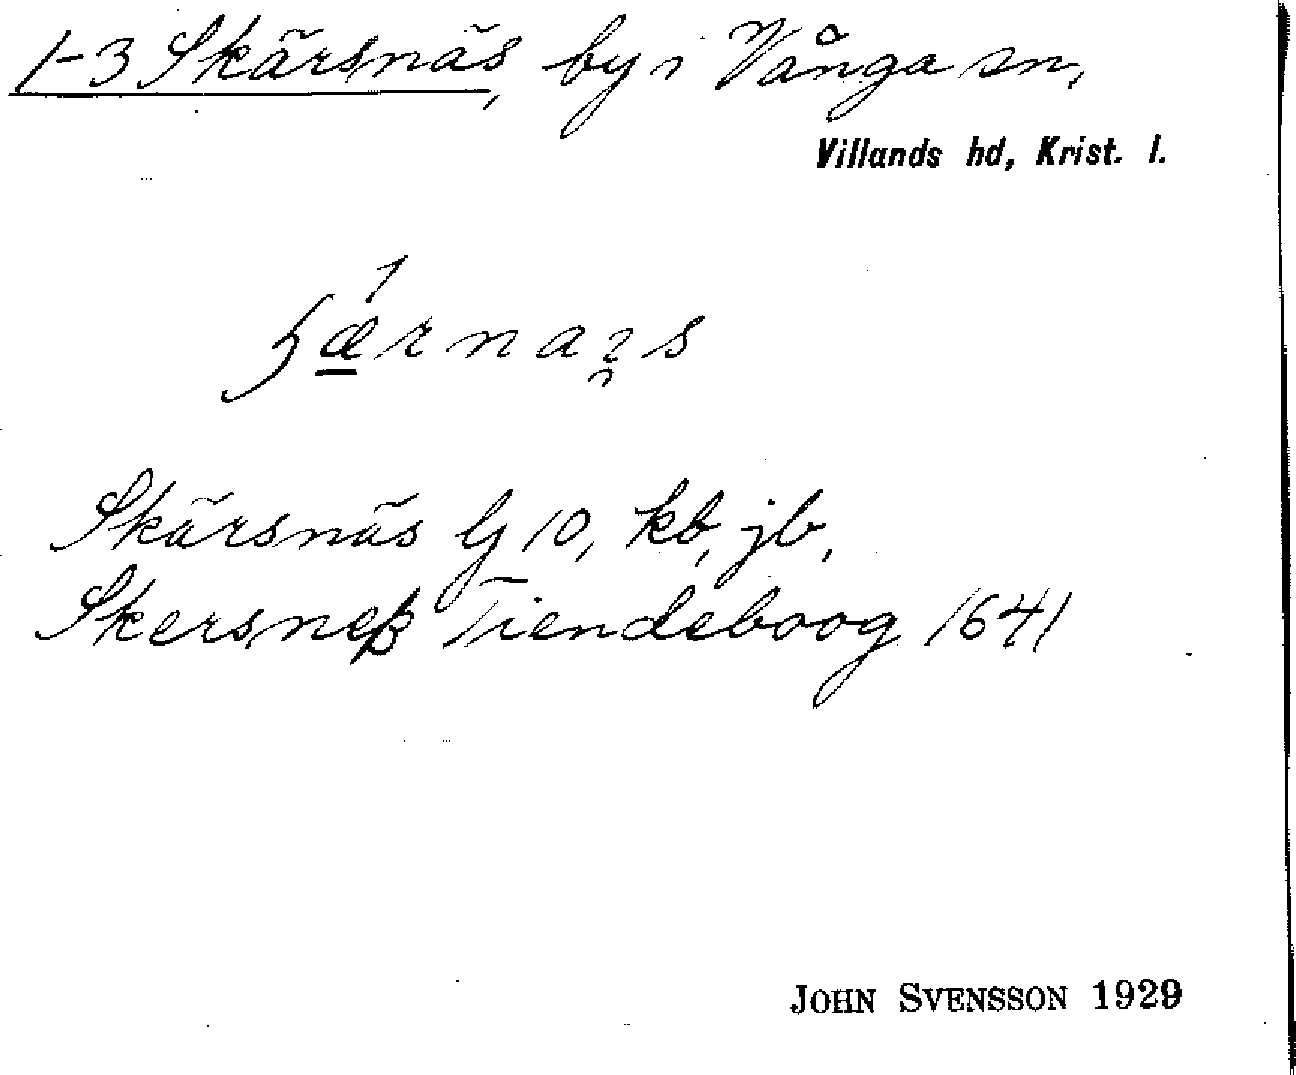 1-3 Skärsnäs, by i Vånga sn,
Villands hd, Krist. l.
Skärsnäs Gj 10, kb, jb,
Skersneß Tiendeboog 1641
JOHN SVENSSON 1929